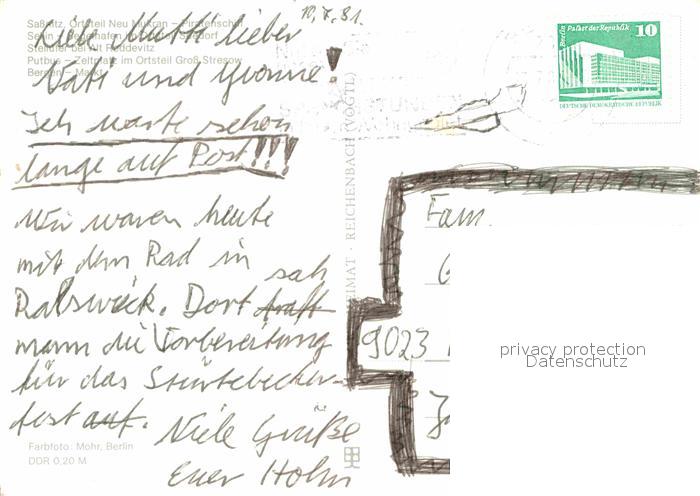 10.7.81.
Saßnitz, Ortsteil Neu Mukran – Piratenschiff
Stellufer bei Alt Reddevitz
Putbus – Zeltplatz im Ortsteil Groß Stresow
Bergen – Markt
Liebe Mutti lieber
Vati und Yvonne!
Ich warte schon
lange auf Post!!!
Wir waren heute
mit dem Rad in
Ralswieck. Dort sah
mann die Vorbereitung
für das Störtebecker-
fest auf. Viele Grüße
Euer Holm
Farbfoto: Mohr, Berlin
DDR 0,20 M
HEIMAT · REICHENBACH (VOGTL)
Berlin
Palast der Republik
10
DEUTSCHE DEMOKRATISCHE REPUBLIK
Fam.
9023
privacy protection
Datenschutz